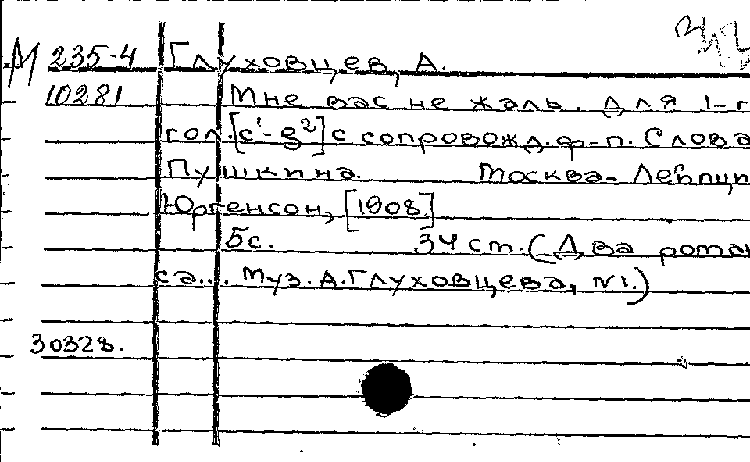 М 235-4 Глуховцев, А.
10281 Мне вас не жаль. Для 1-г
гол. [c¹-g²] с сопровожд. ф-п. Слова
Пушкина. Москва-Лейпци
Юргенсон, [1908.]
5с. 34 см. (Два роман
са... Муз. А. Глуховцева, №1.)
30328.